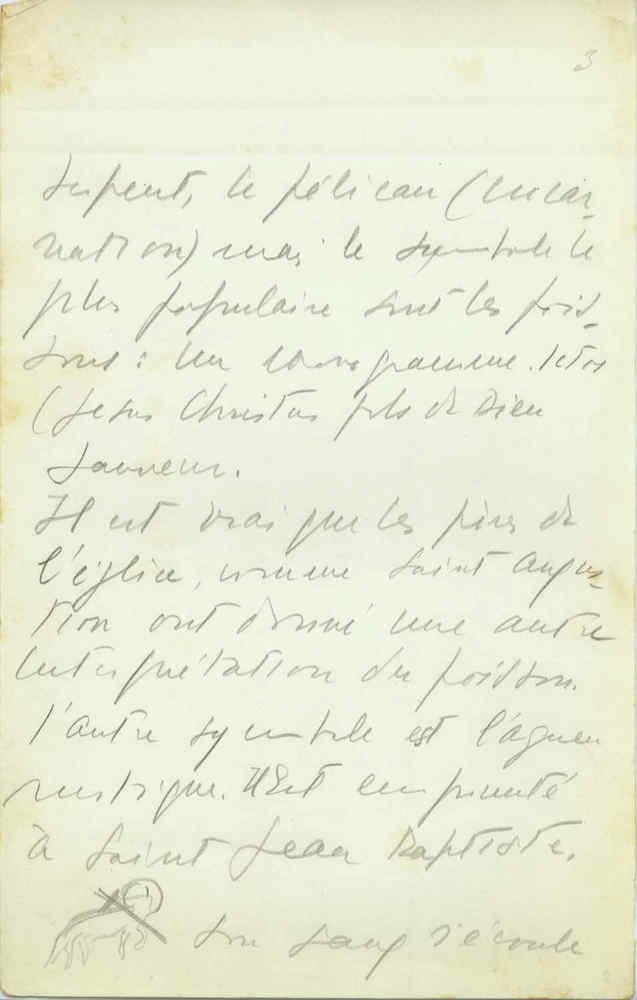 3
serpent, le pélican (incar-
nation) mais le symbole le
plus populaire sont les pois-
sons : un monogramme. Ictos
(Jesus Christus fils de Dieu
Sauveur.
Il est vrai que les pères de
l'église, comme Saint Augus-
tion ont donné une autre
interprétation du poisson.
l'autre symbole est l'agneau
mystique. Il Est emprunté
à Saint Jean Baptiste.
son sang s'écoule